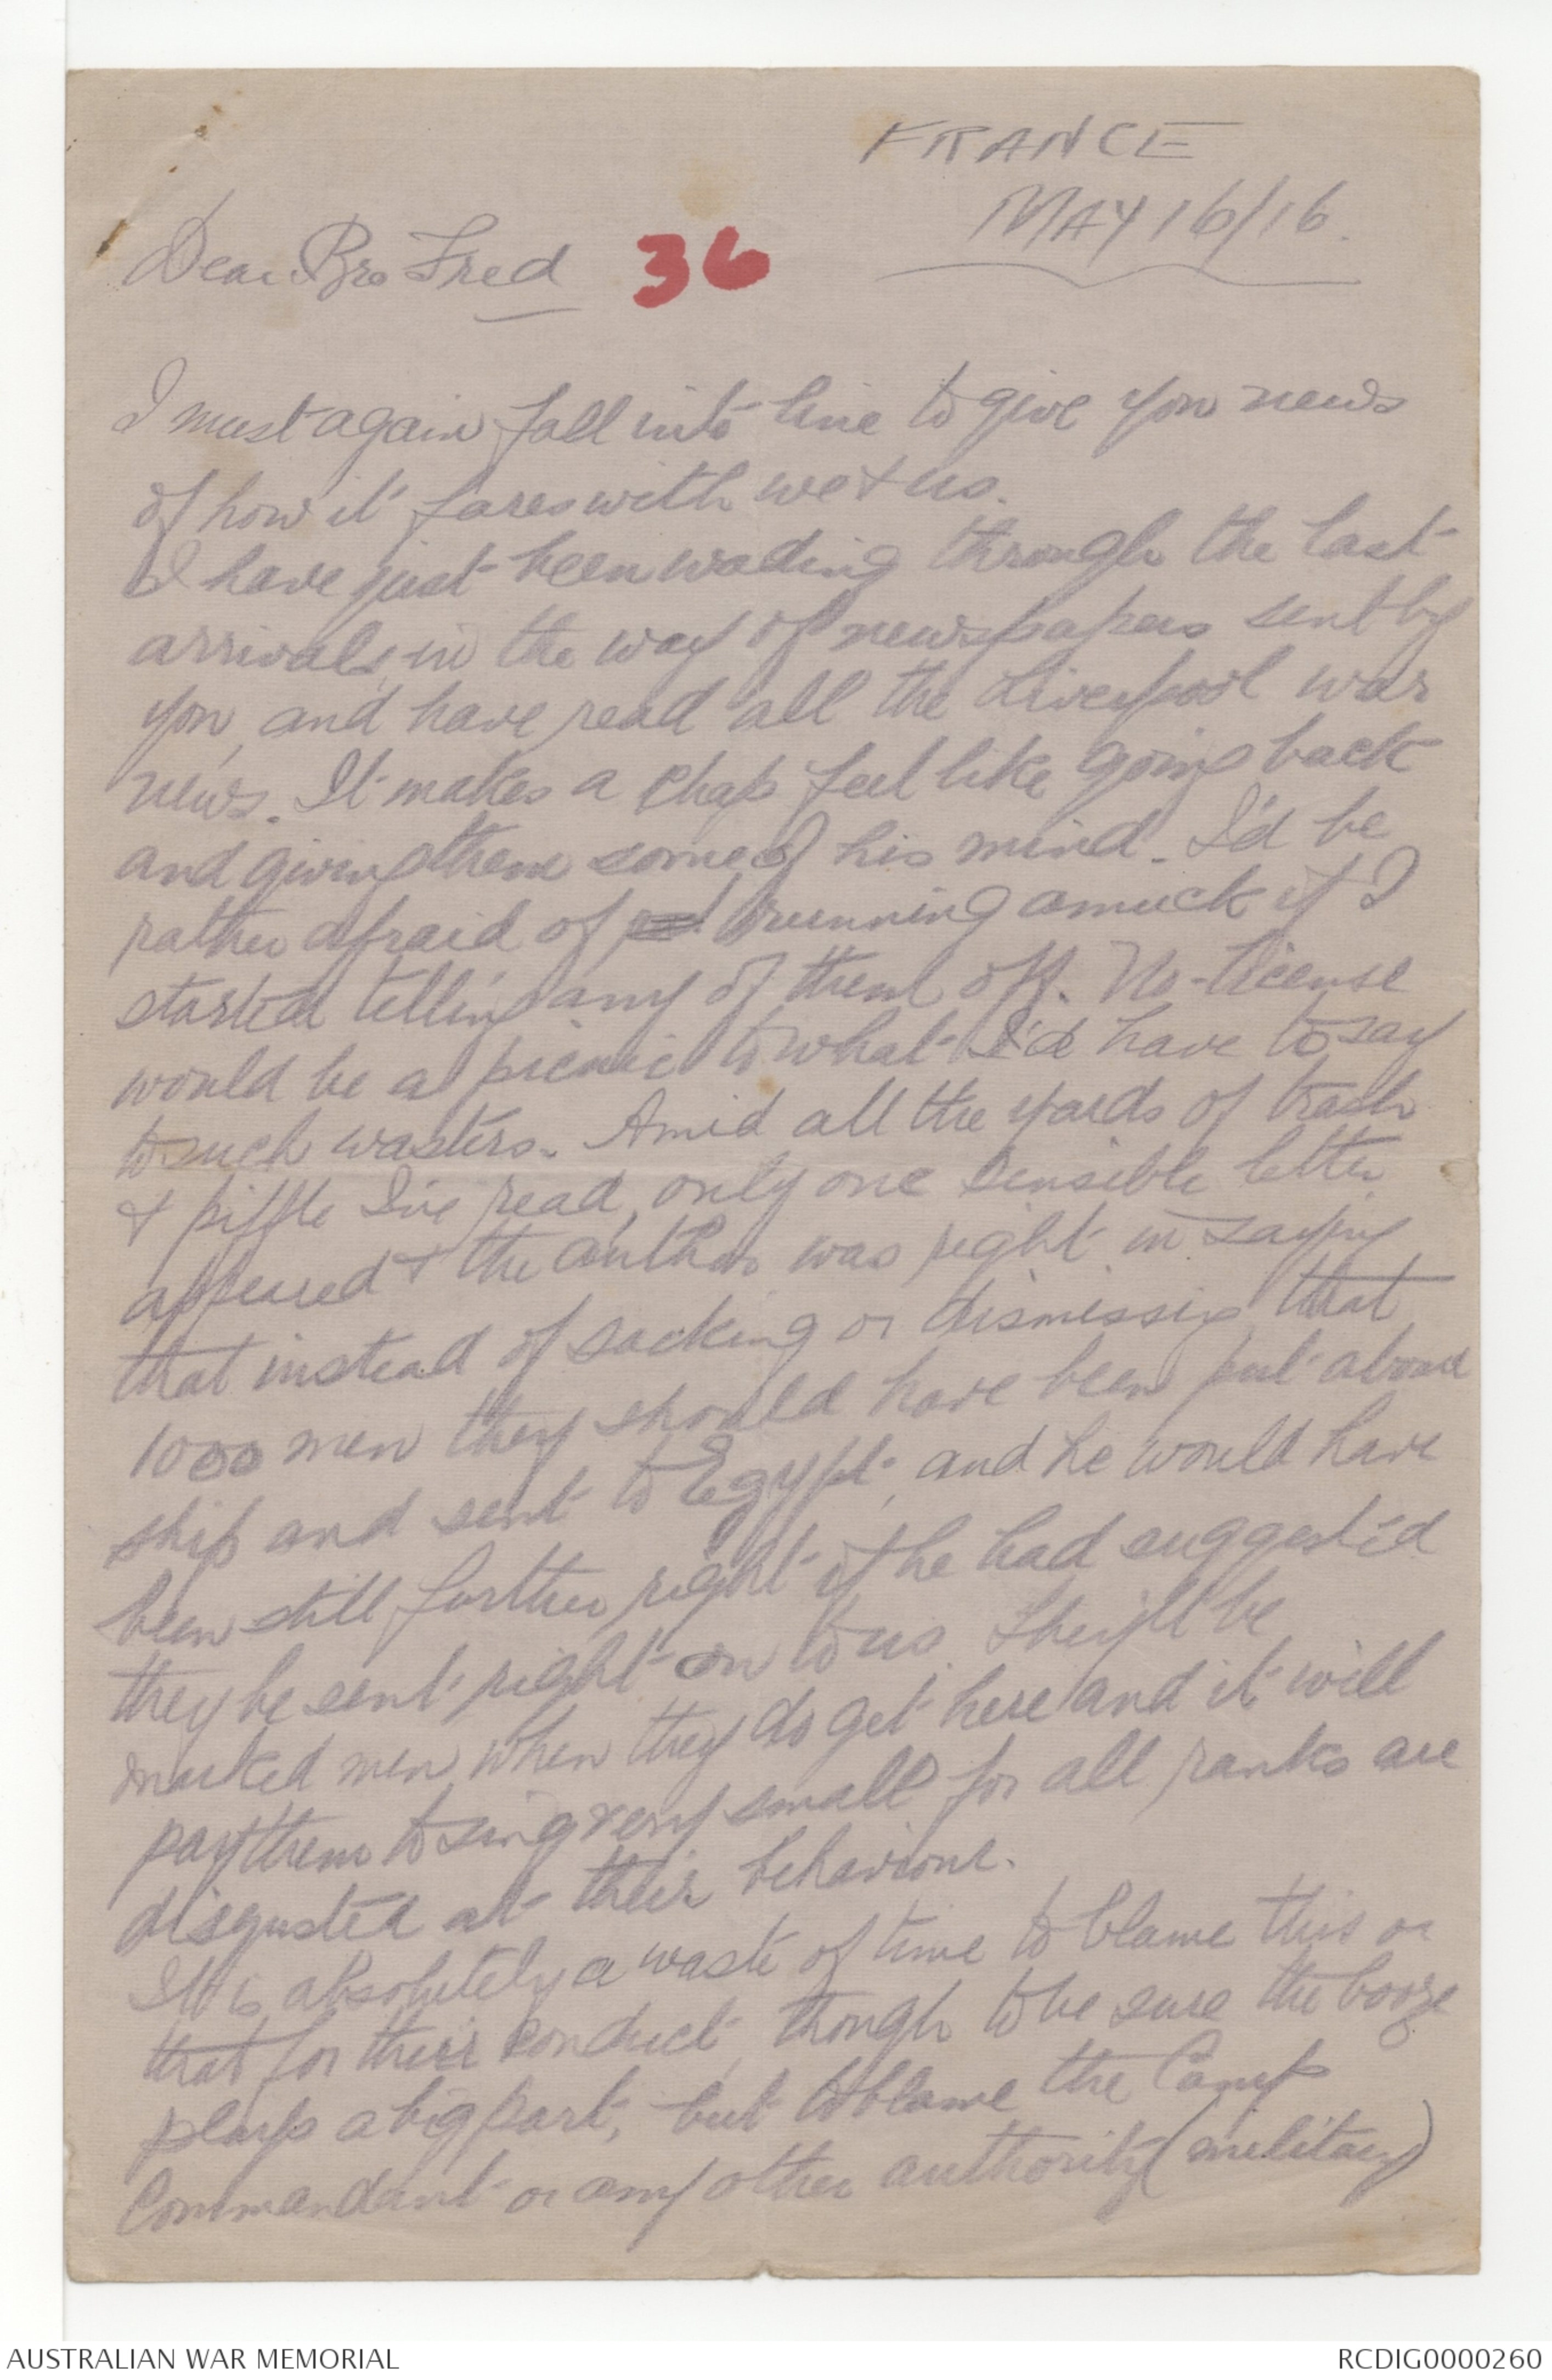 FRANCE
MAY 16/16.
Dear Bro Fred 36
I must again fall into line to give you news
of how it fares with we & us.
I have just been wading through the last
arrivals, in the way of newspapers sent by
you, and have read all the Liverpool war
news. It makes a chap feel like going back
and giving them some of his mind. I'd be
rather afraid of running amuck if I
started telling any of them off. No-License
would be a picnic to what I'd have to say
to such wasters. Amid all the yards of trash
& piffle I've read, only one sensible letter
appeared & the author was right in saying
that instead of sacking or dismissing that
1000 men they should have been put aboard
ship and sent to Egypt, and he would have
been still further right if he had suggested
they be sent right on to us. They'll be
marked men when they do get here and it will
pay them to sing very small for all ranks are
disgusted at their behaviour.
It is absolutely a waste of time to blame this or
that for their conduct, though to be sure the booze
plays a big part, but to blame the Camp
Commandant or any other authority (military)
AUSTRALIAN WAR MEMORIAL
RCDIG0000260